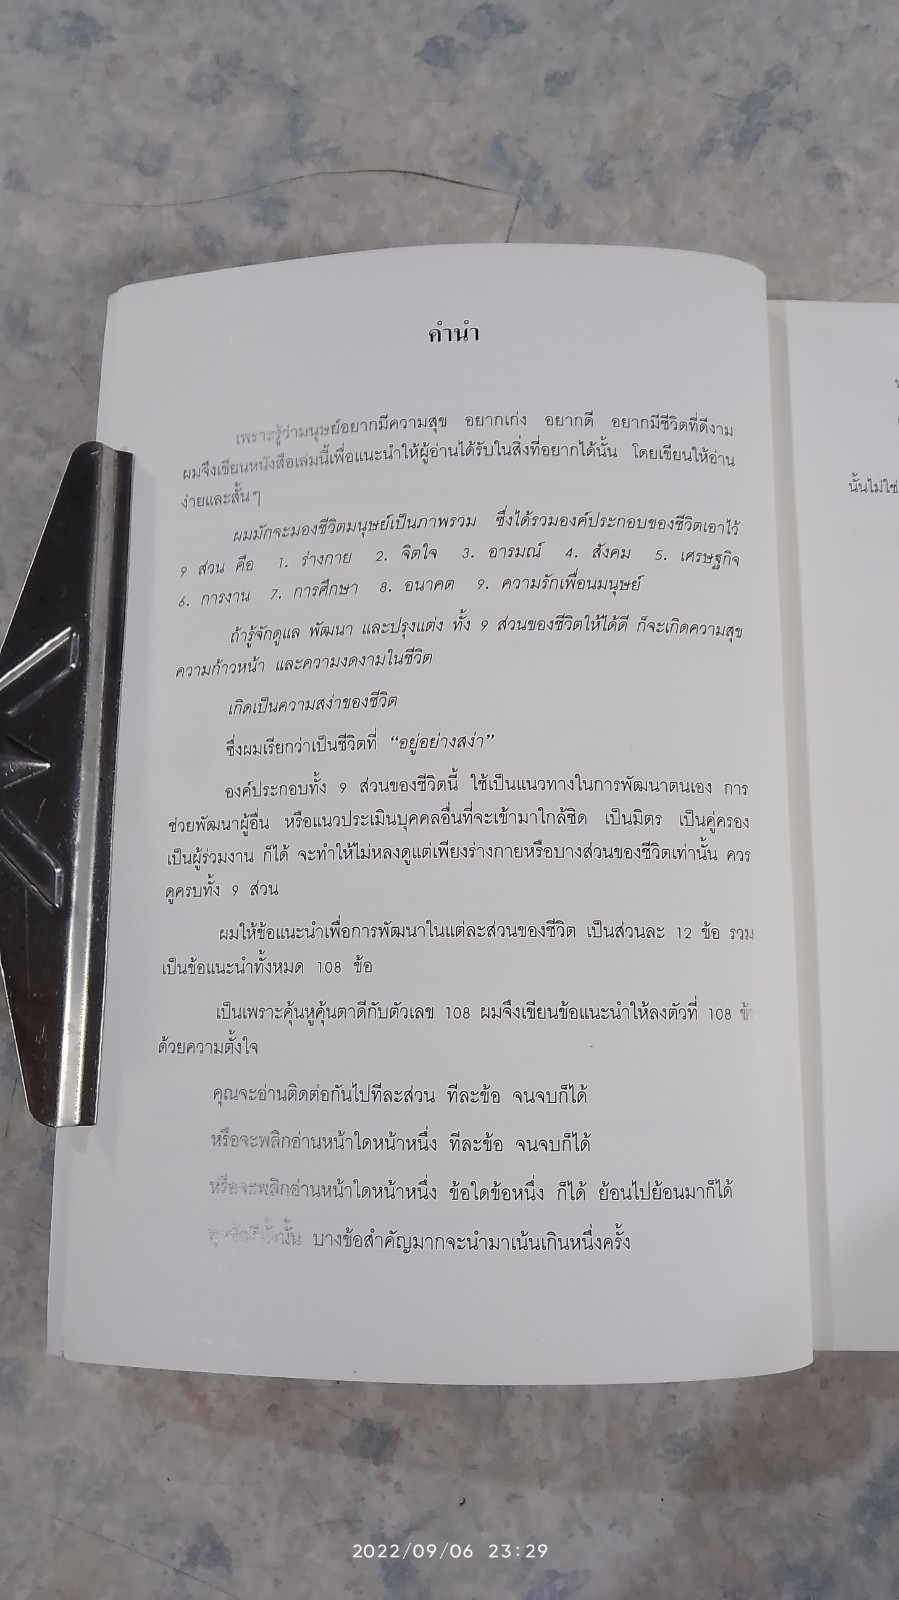 คำนำ
เพราะรู้ว่ามนุษย์อยากมีความสุข อยากเก่ง อยากดี อยากมีชีวิตที่ดีงาม
ผมจึงเขียนหนังสือเล่มนี้เพื่อแนะนำให้ผู้อ่านได้รับในสิ่งที่อยากได้นั้น โดยเขียนให้อ่าน
ง่ายและสั้นๆ
ผมมักจะมองชีวิตมนุษย์เป็นภาพรวม ซึ่งได้รวมองค์ประกอบของชีวิตเอาไว้
9 ส่วน คือ 1. ร่างกาย 2. จิตใจ 3. อารมณ์ 4. สังคม 5. เศรษฐกิจ
6. การงาน 7. การศึกษา 8. อนาคต 9. ความรักเพื่อนมนุษย์
ถ้ารู้จักดูแล พัฒนา และปรุงแต่ง ทั้ง 9 ส่วนของชีวิตให้ได้ดี ก็จะเกิดความสุข
ความก้าวหน้า และความงดงามในชีวิต
เกิดเป็นความสง่าของชีวิต
ซึ่งผมเรียกว่าเป็นชีวิตที่ “อยู่อย่างสง่า”
องค์ประกอบทั้ง 9 ส่วนของชีวิตนี้ ใช้เป็นแนวทางในการพัฒนาตนเอง การ
ช่วยพัฒนาผู้อื่น หรือแนวประเมินบุคคลอื่นที่จะเข้ามาใกล้ชิด เป็นมิตร เป็นคู่ครอง
เป็นผู้ร่วมงาน ก็ได้ จะทำให้ไม่หลงดูแต่เพียงร่างกายหรือบางส่วนของชีวิตเท่านั้น ควร
ดูครบทั้ง 9 ส่วน
ผมให้ข้อแนะนำเพื่อการพัฒนาในแต่ละส่วนของชีวิต เป็นส่วนละ 12 ข้อ รวม
เป็นข้อแนะนำทั้งหมด 108 ข้อ
เป็นเพราะคุ้นหูคุ้นตาดีกับตัวเลข 108 ผมจึงเขียนข้อแนะนำให้ลงตัวที่ 108
ด้วยความตั้งใจ
คุณจะอ่านติดต่อกันไปทีละส่วน ทีละข้อ จนจบก็ได้
หรือจะพลิกอ่านหน้าใดหน้าหนึ่ง ทีละข้อ จนจบก็ได้
หรือจะพลิกอ่านหน้าใดหน้าหนึ่ง ข้อใดข้อหนึ่ง ก็ได้ ย้อนไปย้อนมาก็ได้
บางข้อสำคัญมากจะนำมาเน้นเกินหนึ่งครั้ง
นั้นไม่ใช่
2022/09/06 23:29